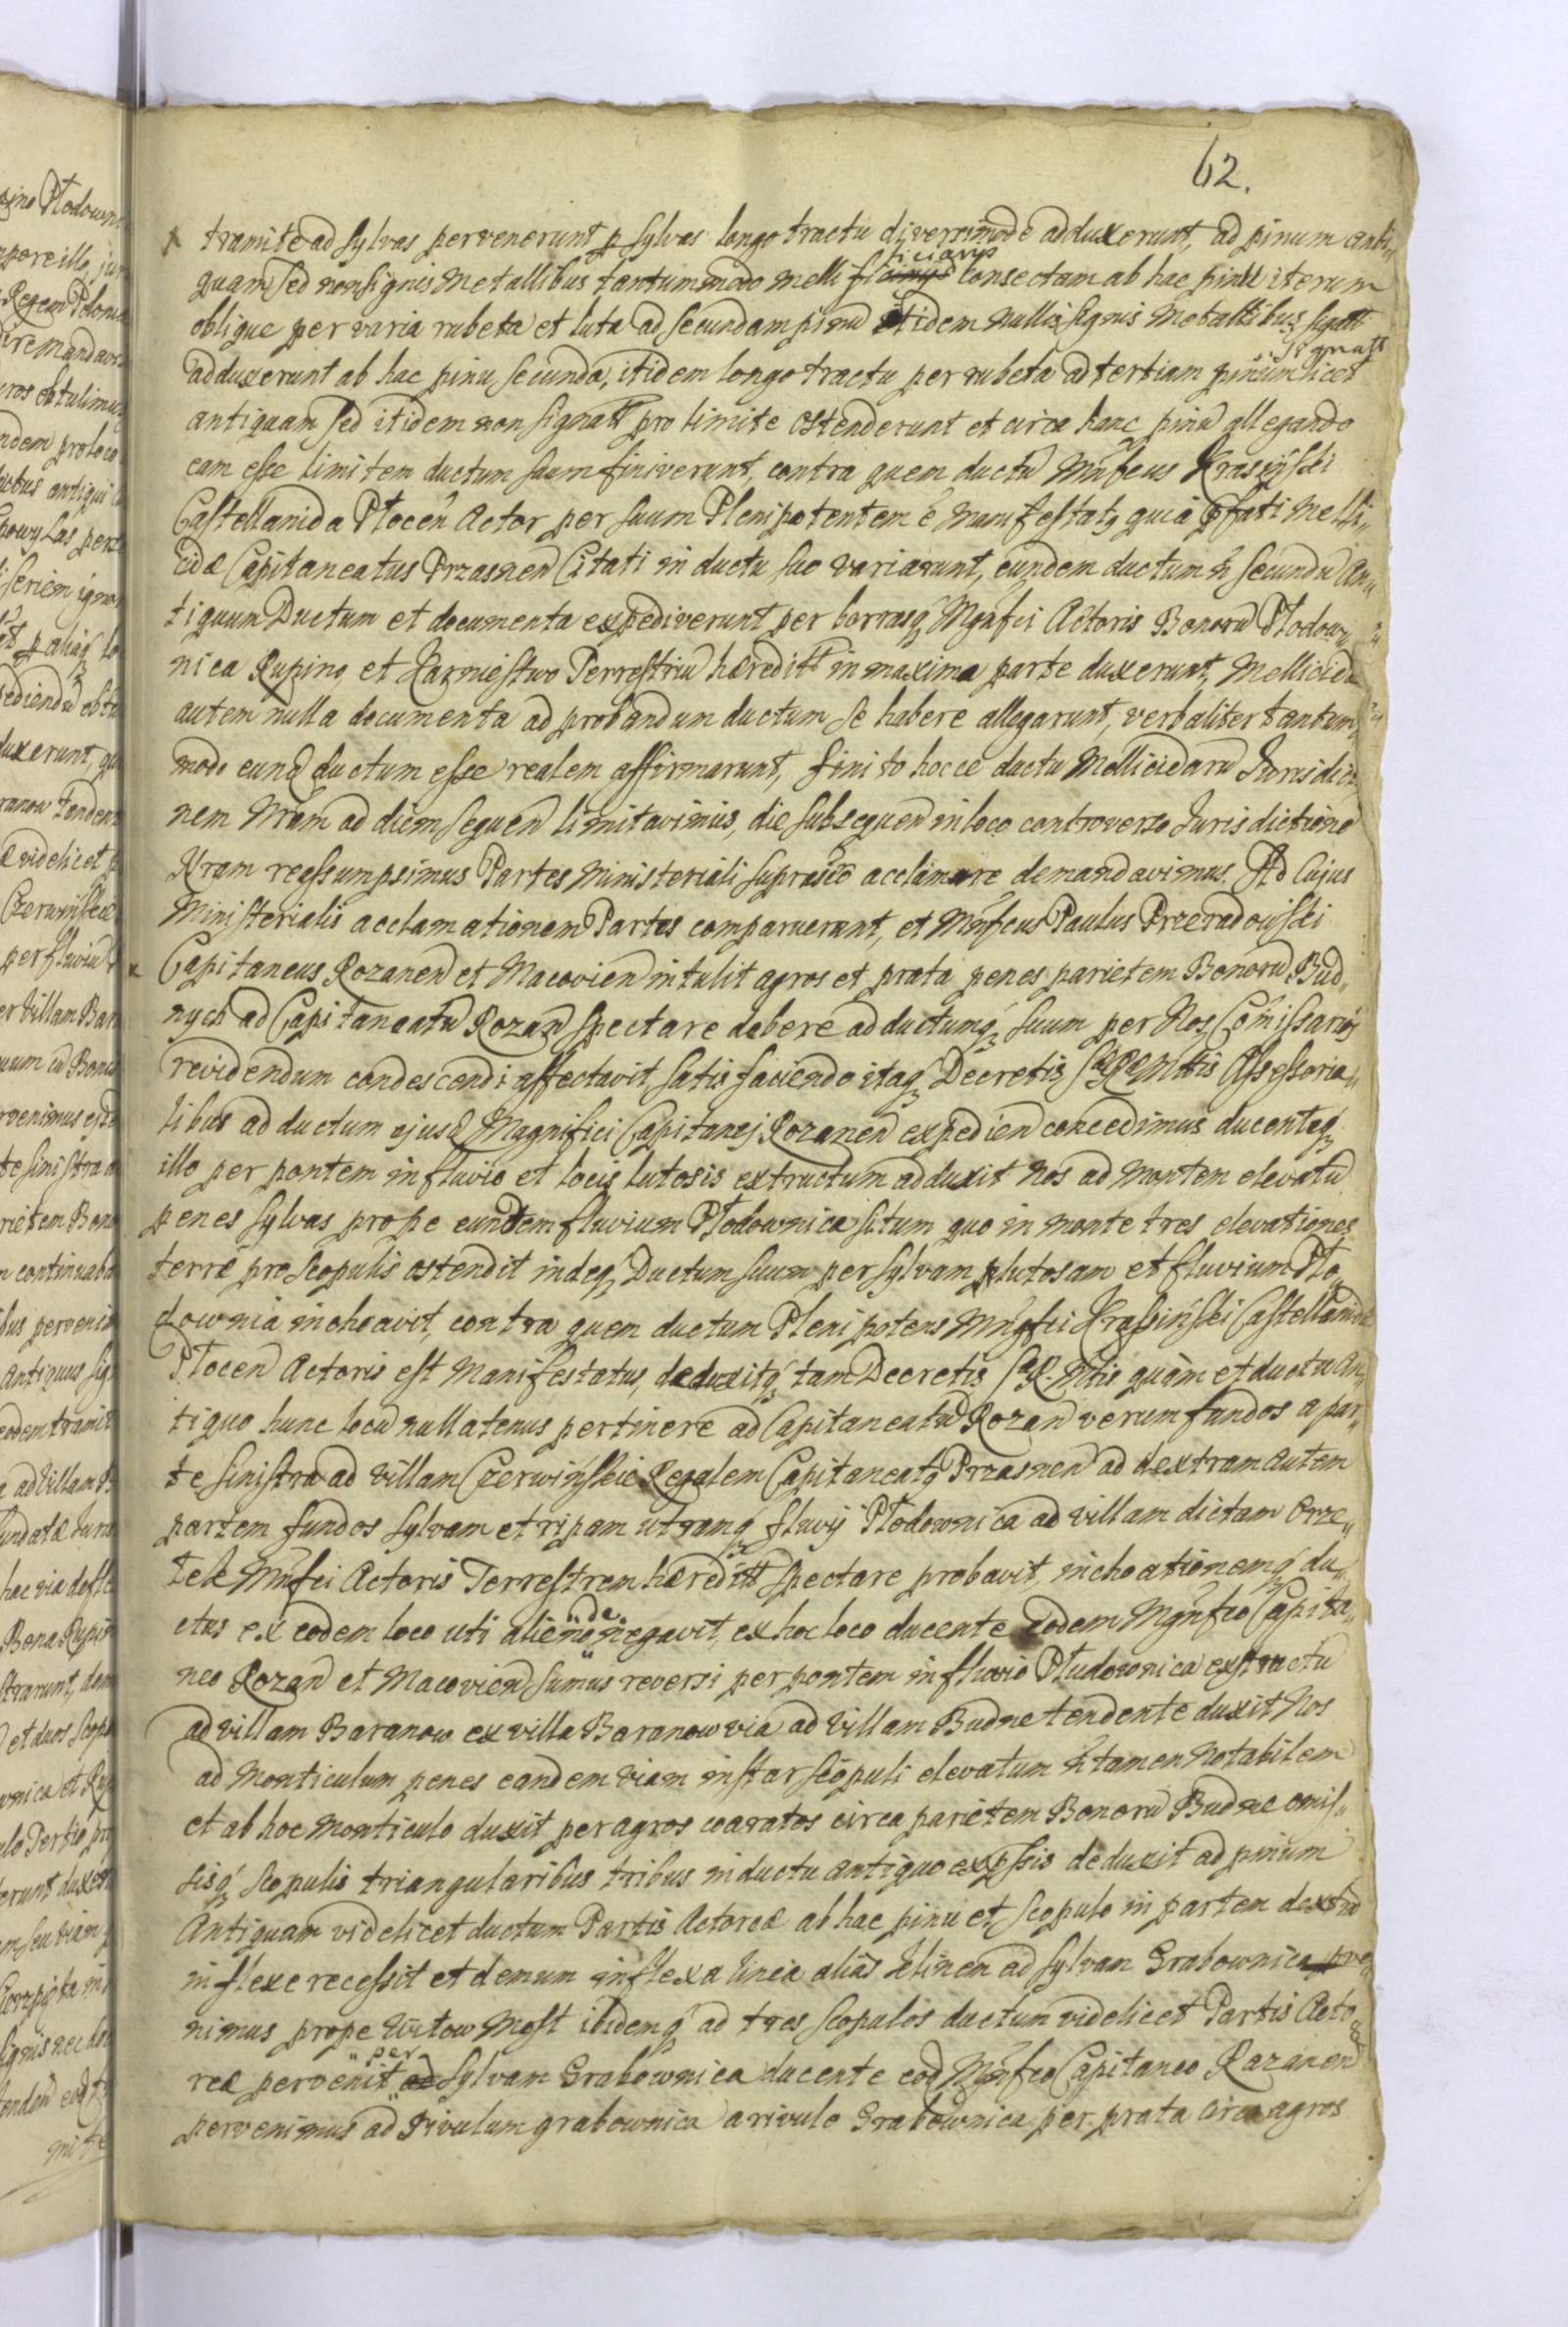 62.
tramite ad sylvas pervenerunt p sylvas longo tractu diversimode adduxerunt, ad pinum anti„
quam sed non signis Metallibus tantummodo Mellificianis consectam ab hac pinu iterum
oblique per varia rubeta et luta ad secundam pinu itidem nullis signis Metallibus signatt
adduxerunt ab hac pinu secunda, itidem longo tractu per rubeta ad tertiam pinum licet
antiquam sed itidem non signatt pro limite ostenderunt et circa hanc pinu allegando
eam esse limitem ductum suum finiverunt, contra quem ductu Mnfcus Krasinski
Castellanida Plocen Actor per suum Plenipotentem e Manifestatq quia pfati Melli„
cidæ Capitaneatus Przasnen Citati in ductu suo variarunt, eundem ductum n secundu An„
tiquum Ductum et documenta expediverunt per borrasq Mgnfci Actoris Bonoru Płodow
nica Rupino, et Kazmiestwo Terrestriu hæreditt in maxima parte duxerunt, Mellicidæ
autem nulla documenta ad probandum ductum se habere allegarunt, verbaliter tantum„
modo eund ductum esse realem affirmarunt, finito hocce ductu Mellicidaru Jurisdictio
nem Nram ad diem sequen limitavimus, die subsequen in loco controverso Jurisdictione
Nram reassumpsimus Partes Ministeriali suprascto acclamare demandavimus. Ad Cujus
Ministerialis acclamationem Partes comparuerunt, et Mnfcus Paulus Przeradowski
Capitaneus Rozanen et Macovien intulit agros et prata penes parietem Bonoru Bud„
nych ad Capitaneatu Rozan spectare debere ad ductumq suum per Nos Comissarios
revidendum condescendi affectavit, satis faciendo itaq Decretis SRMttis Assessoria„
libus ad ductum ejusd Magnifici Capitanej Rozanen expedien concedimus ducenteq
illo per pontem in fluvio et locis lutosis extructum adduxit nos ad Montem elevatu
penes sylvas prope eundem fluvium Płodownica situm quo in monte tres elevationes
terræ pro scopulis ostendit indeq Ductum suum per sylvam plutosam et fluvium Pło„
downia inchoavit, contra quem ductum Plenipotens Mngfci Krassinski Castellanidæ
Plocen Actoris est Manifestatus, deduxitq tam Decretis SR. Mttis quàm et ductu An„
tiquo hunc locu nullatenus pertinere ad Capitaneatu Rozan verum fundos a par„
te sinistra ad villam Czerwińskie Regalem Capitaneatq Przasnen ad dextram autem
partem fundos sylvam et ripam utramq fluvij Płodownica ad villam dictam Orze„
łek Mnfci Actoris Terrestrem hæreditt spectare probavit, inchoationemq du„
ctus ex eodem loco uti alieno denegavit, ex hoc loco ducente eodem Mgnfco Capita„
neo Rozan et Macovien sumus reversi per pontem in fluvio Płudownica exstructu
ad villam Baranow ex villa Baranow via ad villam Budne tendente duxit Nos
ad Monticulum penes eandem viam instar scopuli elevatum n tamen Notabilem
et ab hoc Monticulo duxit per agros coaratos circa parietem Bonoru Budne omis„
sisq scopulis triangularibus tribus in ductu antiquo expssis deduxit ad pinum
Antiquam videlicet ductum Partis Actoreæ ab hac pinu et scopulo in partem dextra
inflexe recessit et demum inflexa linea aliàs Klinem ad sylvam Grabownica perve„
nimus prope Witow Most ibidemq ad tres scopulos ductum videlicet Partis Acto„
reæ pervenit per sylvam Grabownica ducente eod Mgnfco Capitaneo Razanen
pervenimus ad rivulum grabownica a rivulo Grabownica per prata circa agros